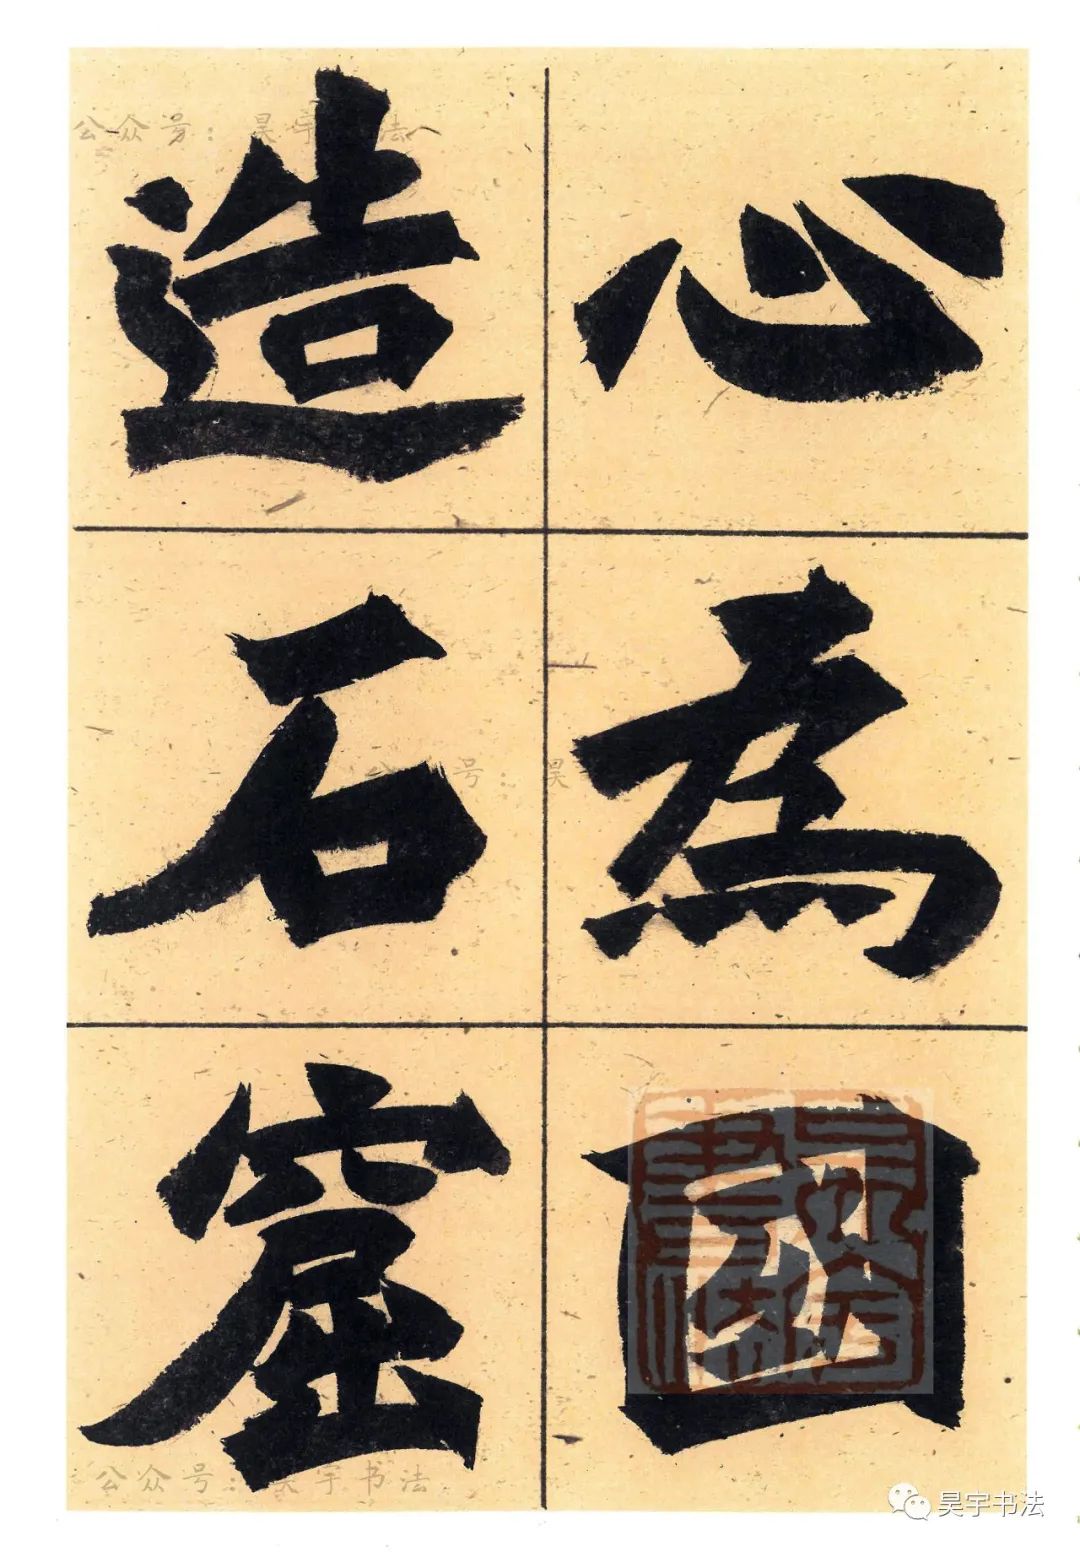 心為國
造石窟
公众号：昊宇书法
公众号：昊宇书法
昊宇书法